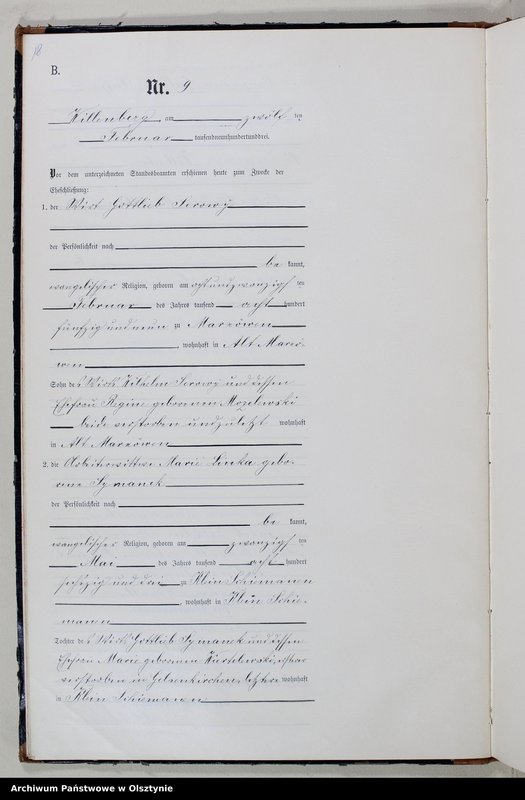 18
B.
Nr. 9
Willenberg, am zwölf ten
Februar tausendneunhundertunddrei.
Vor dem unterzeichneten Standesbeamten erschienen heute zum Zwecke der
Eheschließung:
1. der Wirt Gottlieb
der Persönlichkeit nach
be kannt,
evangelischer Religion, geboren am achtundzwanzigs ten
Februar des Jahres tausend acht hundert
fünfzig und neun zu Marxöwen
, wohnhaft in Alt Marxö-
wen
Sohn des Wirts Wilhelm und dessen
Ehefrau Regine geborenen
beide verstorben und zuletzt wohnhaft
in Alt Marxöwen
2. die Arbeiterwittwe Marie Linka gebo-
rene Symanek
der Persönlichkeit nach
be kannt,
evangelischer Religion, geboren am zwanzigs ten
Mai des Jahres tausend acht hundert
sechzig und drei zu Klein Schiemanen
, wohnhaft in Klein Schie-
manen
Tochter des Wirts Gottlieb Symanek und dessen
Ehefrau Marie geborenen ersterer
verstorben in Gelsenkirchen, letztere wohnhaft
in Klein Schiemanen
Archiwum Państwowe w Olsztynie